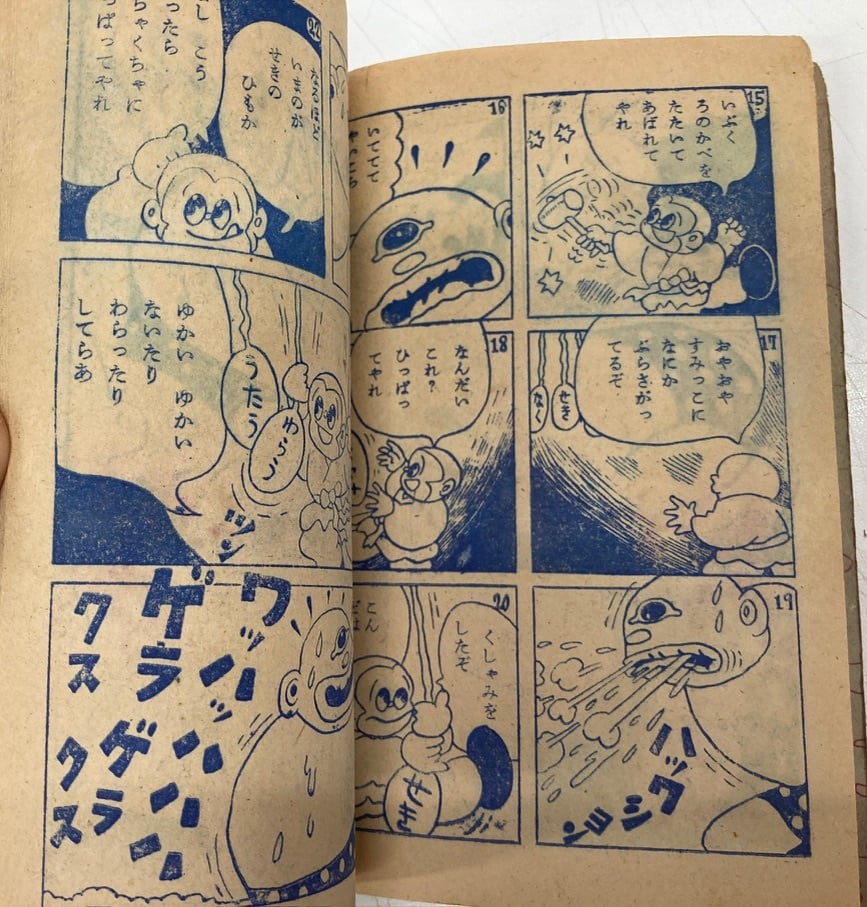 15
いぶく
ろのかべを
たたいて
あばれて
やれ
16
いててて
17
おやおや
すみっこに
なにか
ぶらさがっ
てるぞ
せき
なく
18
なんだい
これ?
ひっぱっ
てやれ
19
ハックション
20
くしゃみを
したぞ
こん
せき
22
なるほど
いまのが
せきの
ひもか
こう
ったら
ちゃくちゃに
っぱってやれ
うたう
ゆかい ゆかい
ないたり
わらったり
してらあ
ワッハッハハハ
ゲラゲラ
クスクス